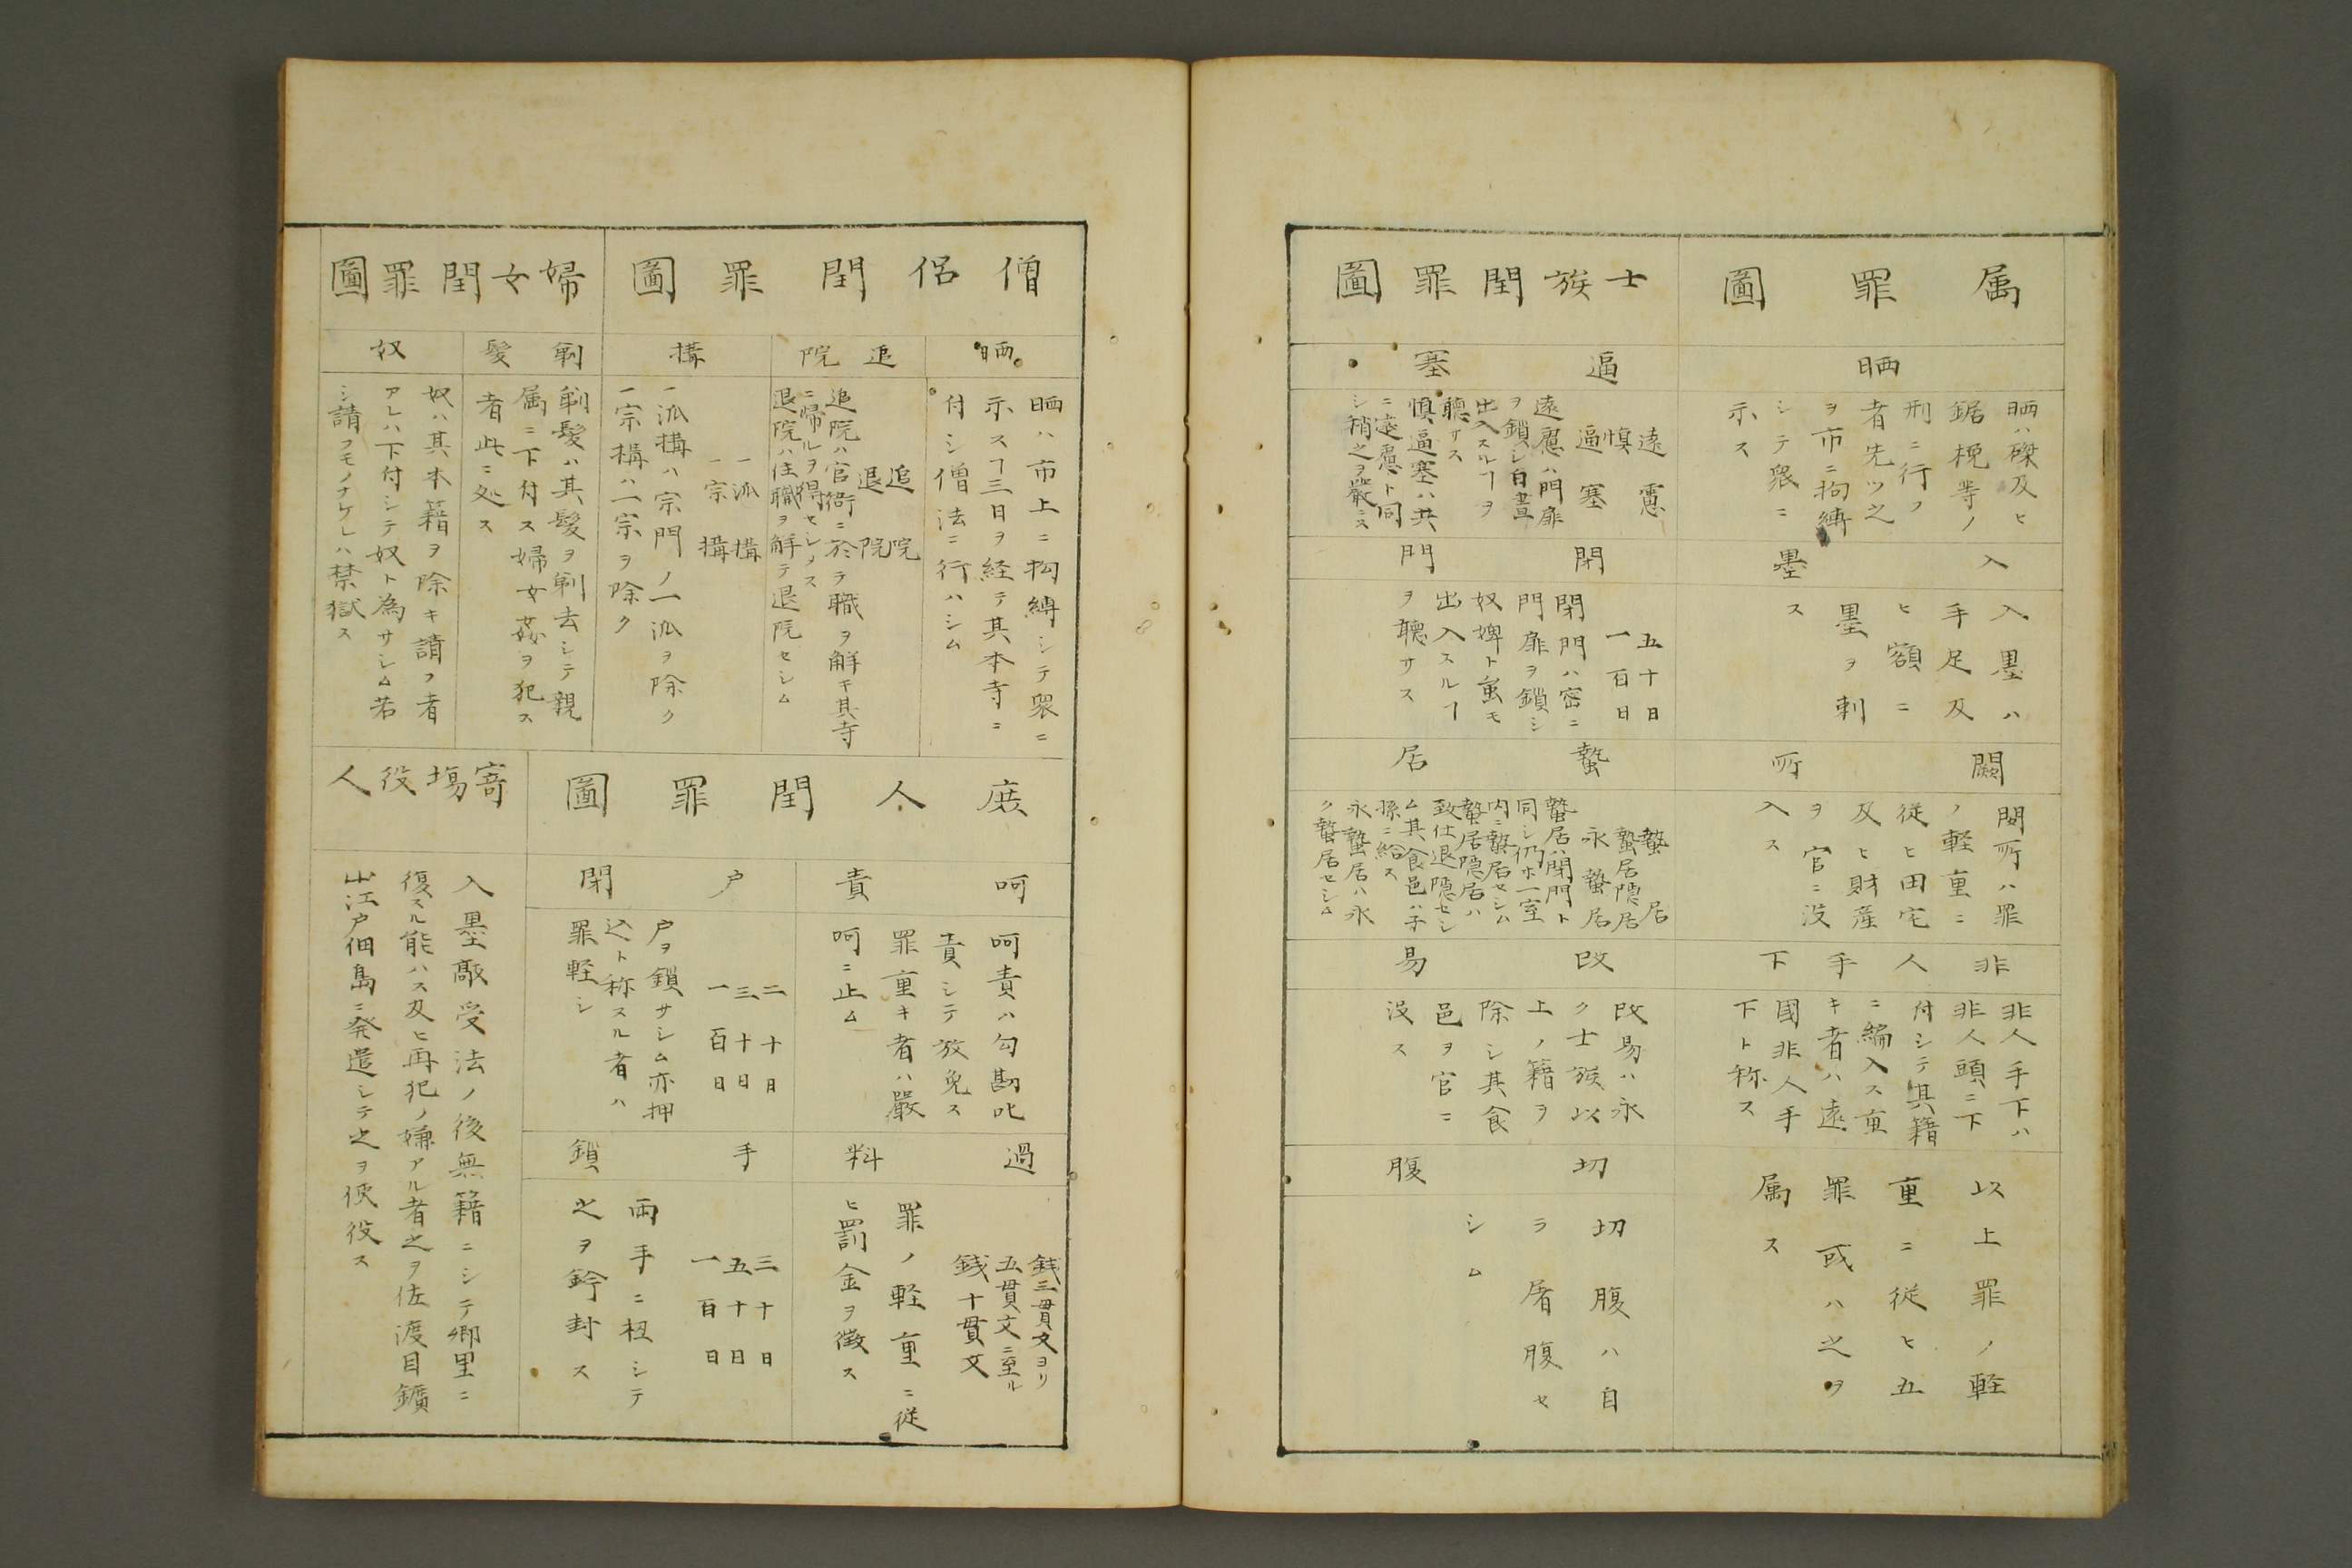 属罪圖
晒
晒ハ磔及ヒ
鋸挽等ノ
刑ニ行フ
者先ツ之
ヲ市ニ拘縛
シテ衆ニ
示ス
入墨
入墨ハ
手足及
ヒ額ニ
墨ヲ刺
ス
闕所
闕所ハ罪
ノ軽重ニ
従ヒ田宅
及ヒ財産
ヲ官ニ没
入ス
非人手下
非人手下ハ
非人頭ニ下
付シテ其籍
ニ編入ス重
キ者ハ遠
國非人手
下ト称ス
以上罪ノ軽
重ニ従ヒ五
罪或ハ之ヲ
属ス
士族閏罪圖
逼塞
遠慮
慎
逼塞
遠慮ハ門扉
ヲ鎖シ白晝
出入スルヿヲ
聽サス
慎逼塞ハ共
ニ遠慮ト同
シ稍之ヲ嚴ニス
閉門
五十日
一百日
閉門ハ密ニ
門扉ヲ鎖シ
奴婢ト虽モ
出入スルヿ
ヲ聽サス
蟄居
蟄居
蟄居隠居
永蟄居
蟄居ハ閉門ト
同シ仍ホ一室
内ニ蟄居セシム
蟄居隠居ハ
致仕退隠セシ
ム其食邑ハ子
孫ニ給ス
永蟄居ハ永
ク蟄居セシム
改易
改易ハ永
ク士族以
上ノ籍ヲ
除シ其食
邑ヲ官ニ
没ス
切腹
切腹ハ自
ラ屠腹セ
シム
僧侶閏罪圖
晒
晒ハ市上ニ拘縛シテ衆ニ
示スヿ三日ヲ経テ其本寺ニ
付シ僧法ニ行ハシム
追院
追院
退院
追院ハ官衙ニ於テ職ヲ解キ其寺
ニ帰ルヲ得セシメス
退院ハ住職ヲ解テ退院セシム
搆
一派搆
一宗搆
一派搆ハ宗門ノ一派ヲ除ク
一宗搆ハ一宗ヲ除ク
婦女閏罪圖
剃髮
剃髮ハ其髮ヲ剃去シテ親
属ニ下付ス婦女姦ヲ犯ス
者此ニ处ス
奴
奴ハ其本籍ヲ除キ請フ者
アレハ下付シテ奴ト為サシム若
シ請フモノナケレハ禁獄ス
庶人閏罪圖
呵責
呵責ハ勾勘叱
責シテ放免ス
罪重キ者ハ嚴
呵ニ止ム
過料
銭三貫文ヨリ
五貫文ニ至ル
銭十貫文
罪ノ軽重ニ従
ヒ罰金ヲ徴ス
戸閉
二十日
三十日
一百日
戸ヲ鎖サシム亦押
込ト称スル者ハ
罪軽シ
手鎖
三十日
五十日
一百日
両手ニ杻シテ
之ヲ鈐封ス
寄場役人
入墨敲受法ノ後無籍ニシテ郷里ニ
復スル能ハス及ヒ再犯ノ嫌アル者之ヲ佐渡目鑛
山江戸佃島ニ発遣シテ之ヲ使役ス